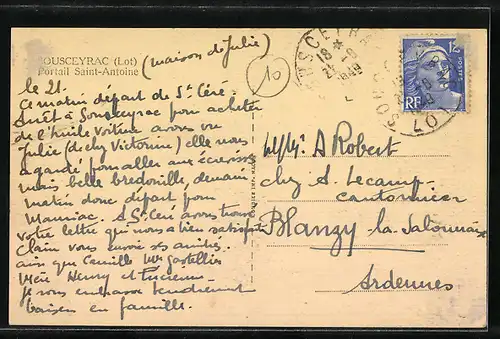 OUSCEYRAC (Lot)
Portail Saint-Antoine
(maison de Julie)
le 21.
Ce matin départ de St Céré.
arrêt à Sousceyrac pour acheter
de l'huile voiture avons vu
Julie (de chez Victorine) elle nous
a gardé pour aller aux écrevisses
mais belle bredouille, demain
matin donc départ pour
Mauriac. A St Céré avons trouvé
votre lettre qui nous a bien satisfait
Clain vous envoie ses amitiés
ainsi que Camille Mme Gastellier
Henry et Lucienne.
je vous embrasse tendrement
baisers en famille.
10
SOUSCEYRAC
18 *
21 -8
1949
LOT
12F
POSTES
RF
A Robert
chez A. Lecamp
cantonnier
Blanzy la Salonnaise
Ardennes